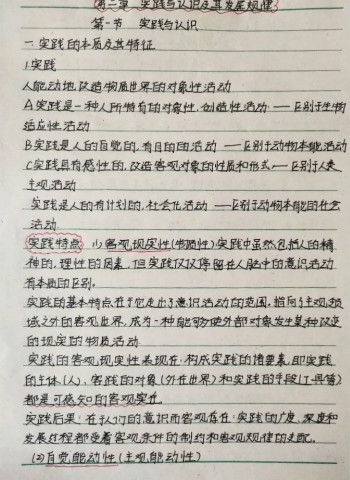 第二章 实践与认识及其发展规律
第一节 实践与认识
一. 实践的本质及其特征
1.实践
人能动地改造物质世界的对象性活动
A实践是一种人所特有的对象性,创造性活动 —— 区别于生物
适应性活动
B实践是人的自觉的,有目的的活动 —— 区别于动物本能活动
C实践具有感性的,改造客观对象的性质和形式 — 区别于人类
主观活动
实践是人的有计划的,社会化活动 —— 区别于动物本能的社会
活动
实践特点 (1)客观现实性(物质性)实践中虽然包括人的精
神的,理性的因素,但实践仅仅停留在人脑中的意识活动
有本质的区别。
实践的基本特点在于它走出了意识活动的范围,指向了主观领
域之外的客观世界,成为一种能够使外部对象发生某种改造
的现实的物质活动.
实践的客观现实性表现在:构成实践的诸要素,即实践
的主体(人),实践的对象(外在世界)和实践的手段(工具等)
都是可感知的客观实在.
实践后果:在于人们的意识而客观存在:实践的广度,深度和
发展过程都受着客观条件的制约和客观规律的支配.
(2)自觉能动性(主观能动性)